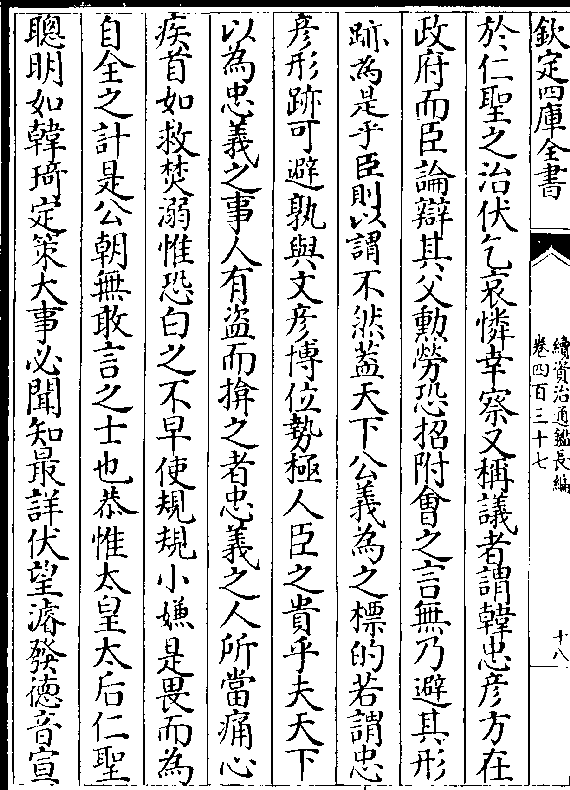 欽定四庫全書
續資治通鑑長編
卷四百三十七
十八
於仁聖之治伏乞哀憐幸察又稱議者謂韓忠彦方在
政府而臣論辯其父勲勞恐招附會之言無乃避其形
跡為是乎臣則以謂不然蓋天下公義為之標的若謂忠
彦形跡可避孰與文彦博位勢極人臣之貴乎夫天下
以為忠義之事人有盗而揜之者忠義之人所當痛心
疾首如救焚溺惟恐白之不早使規規小嫌是畏而為
自全之計是公朝無敢言之士也恭惟太皇太后仁聖
聰明如韓琦定策大事必聞知最詳伏望濬發德音宣